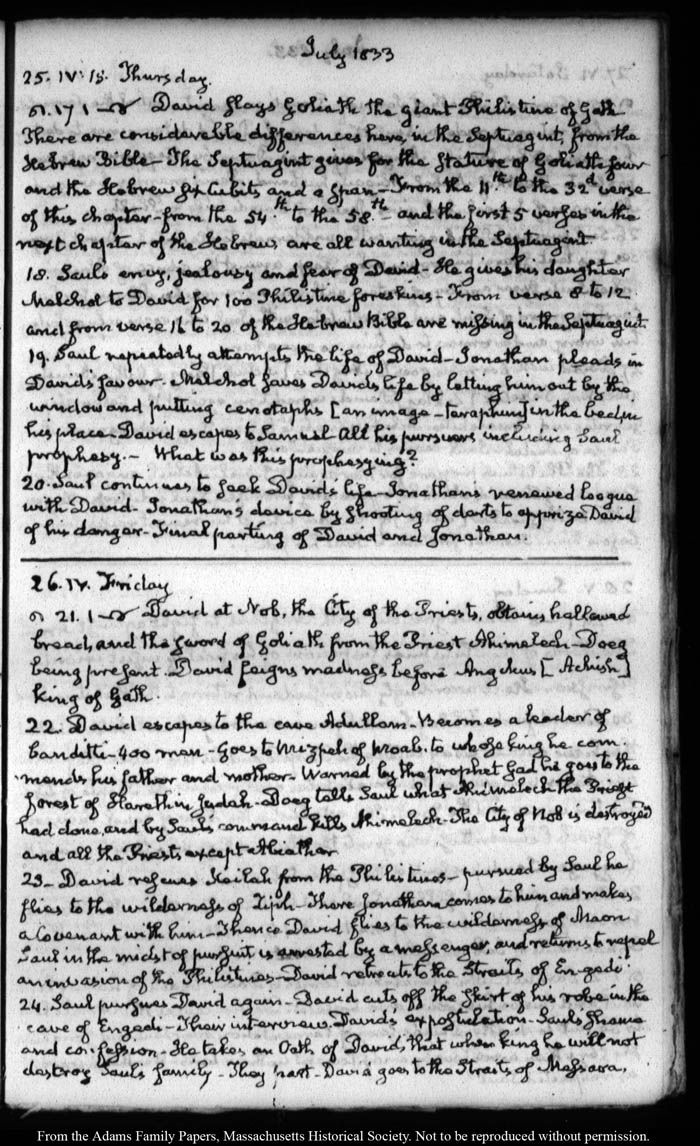 July 1833
25. IV: 15. Thursday.
17 1 David slays Goliath the giant Philistine of Gath
There are considerable differences here, in the Septuagint, from the
Hebrew Bible - The Septuagint gives for the stature of Goliath four
and the Hebrew six Cubits and a span - From the 11.th to the 32d verse
of this chapter - from the 54.th to the 58.th - and the first 5 verses in the
next chapter of the Hebrew are all wanting in the Septuagint.
18. Sauls envy, jealousy and fear of David - He gives his daughter
Melchol to David for 100 Philistine foreskins - From verse 8 to 12
and from verse 16 to 20 of the Hebrew Bible are missing in the Septuagint.
19. Saul repeatedly attempts the life of David - Jonathan pleads in
Davids favour. Melchol saves Davids life by letting him out by the
window and putting cenotaphs [an image - teraphim] in the bed, in
his place. David escapes to Samuel. All his pursuers including Saul
prophesy. - What was this prophesying?
20. Saul continues to seek Davids life - Jonathans renewed league
with David - Jonathans device by shooting of darts to apprize David
of his danger - Final parting of David and Jonathan.
26. IV. Friday
21. 1 David at Nob, the City of the Priests, obtains hallowed
bread, and the sword of Goliath from the Priest Ahimelech - Doeg
being present. David feigns madness before Anchus [Achish]
king of Gath.
22. David escapes to the cave Adullam. Becomes a leader of
banditti - 400 men - Goes to Mizpeh of Moab, to whose king he com-
mends his father and mother - Warned by the prophet Gad he goes to the
forest of Hareth in Judah - Doeg tells Saul what Ahimelech the Priest
had done, and by Sauls command kills Ahimelech - The City of Nob is destroyed
and all the Priests except Abiathar
23 - David rescues Keilah from the Philistines - pursued by Saul he
flies to the wilderness of Ziph - There Jonathan comes to him and makes
a Covenant with him - Thence David flies to the wilderness of Maon
Saul in the midst of pursuit is arrested by a messenger, and returns to repel
an invasion of the Philistines - David retreats to the Straits of En-gedi.
24. Saul pursues David again - David cuts off the skirt of his robe in the
cave of Engedi - Their interview. Davids expostulation - Sauls shame
and confession - He takes an Oath of David, that when king he will not
destroy Sauls family - They part - David goes to the Straits of Messara.
From the Adams Family Papers, Massachusetts Historical Society. Not to be reproduced without permission.